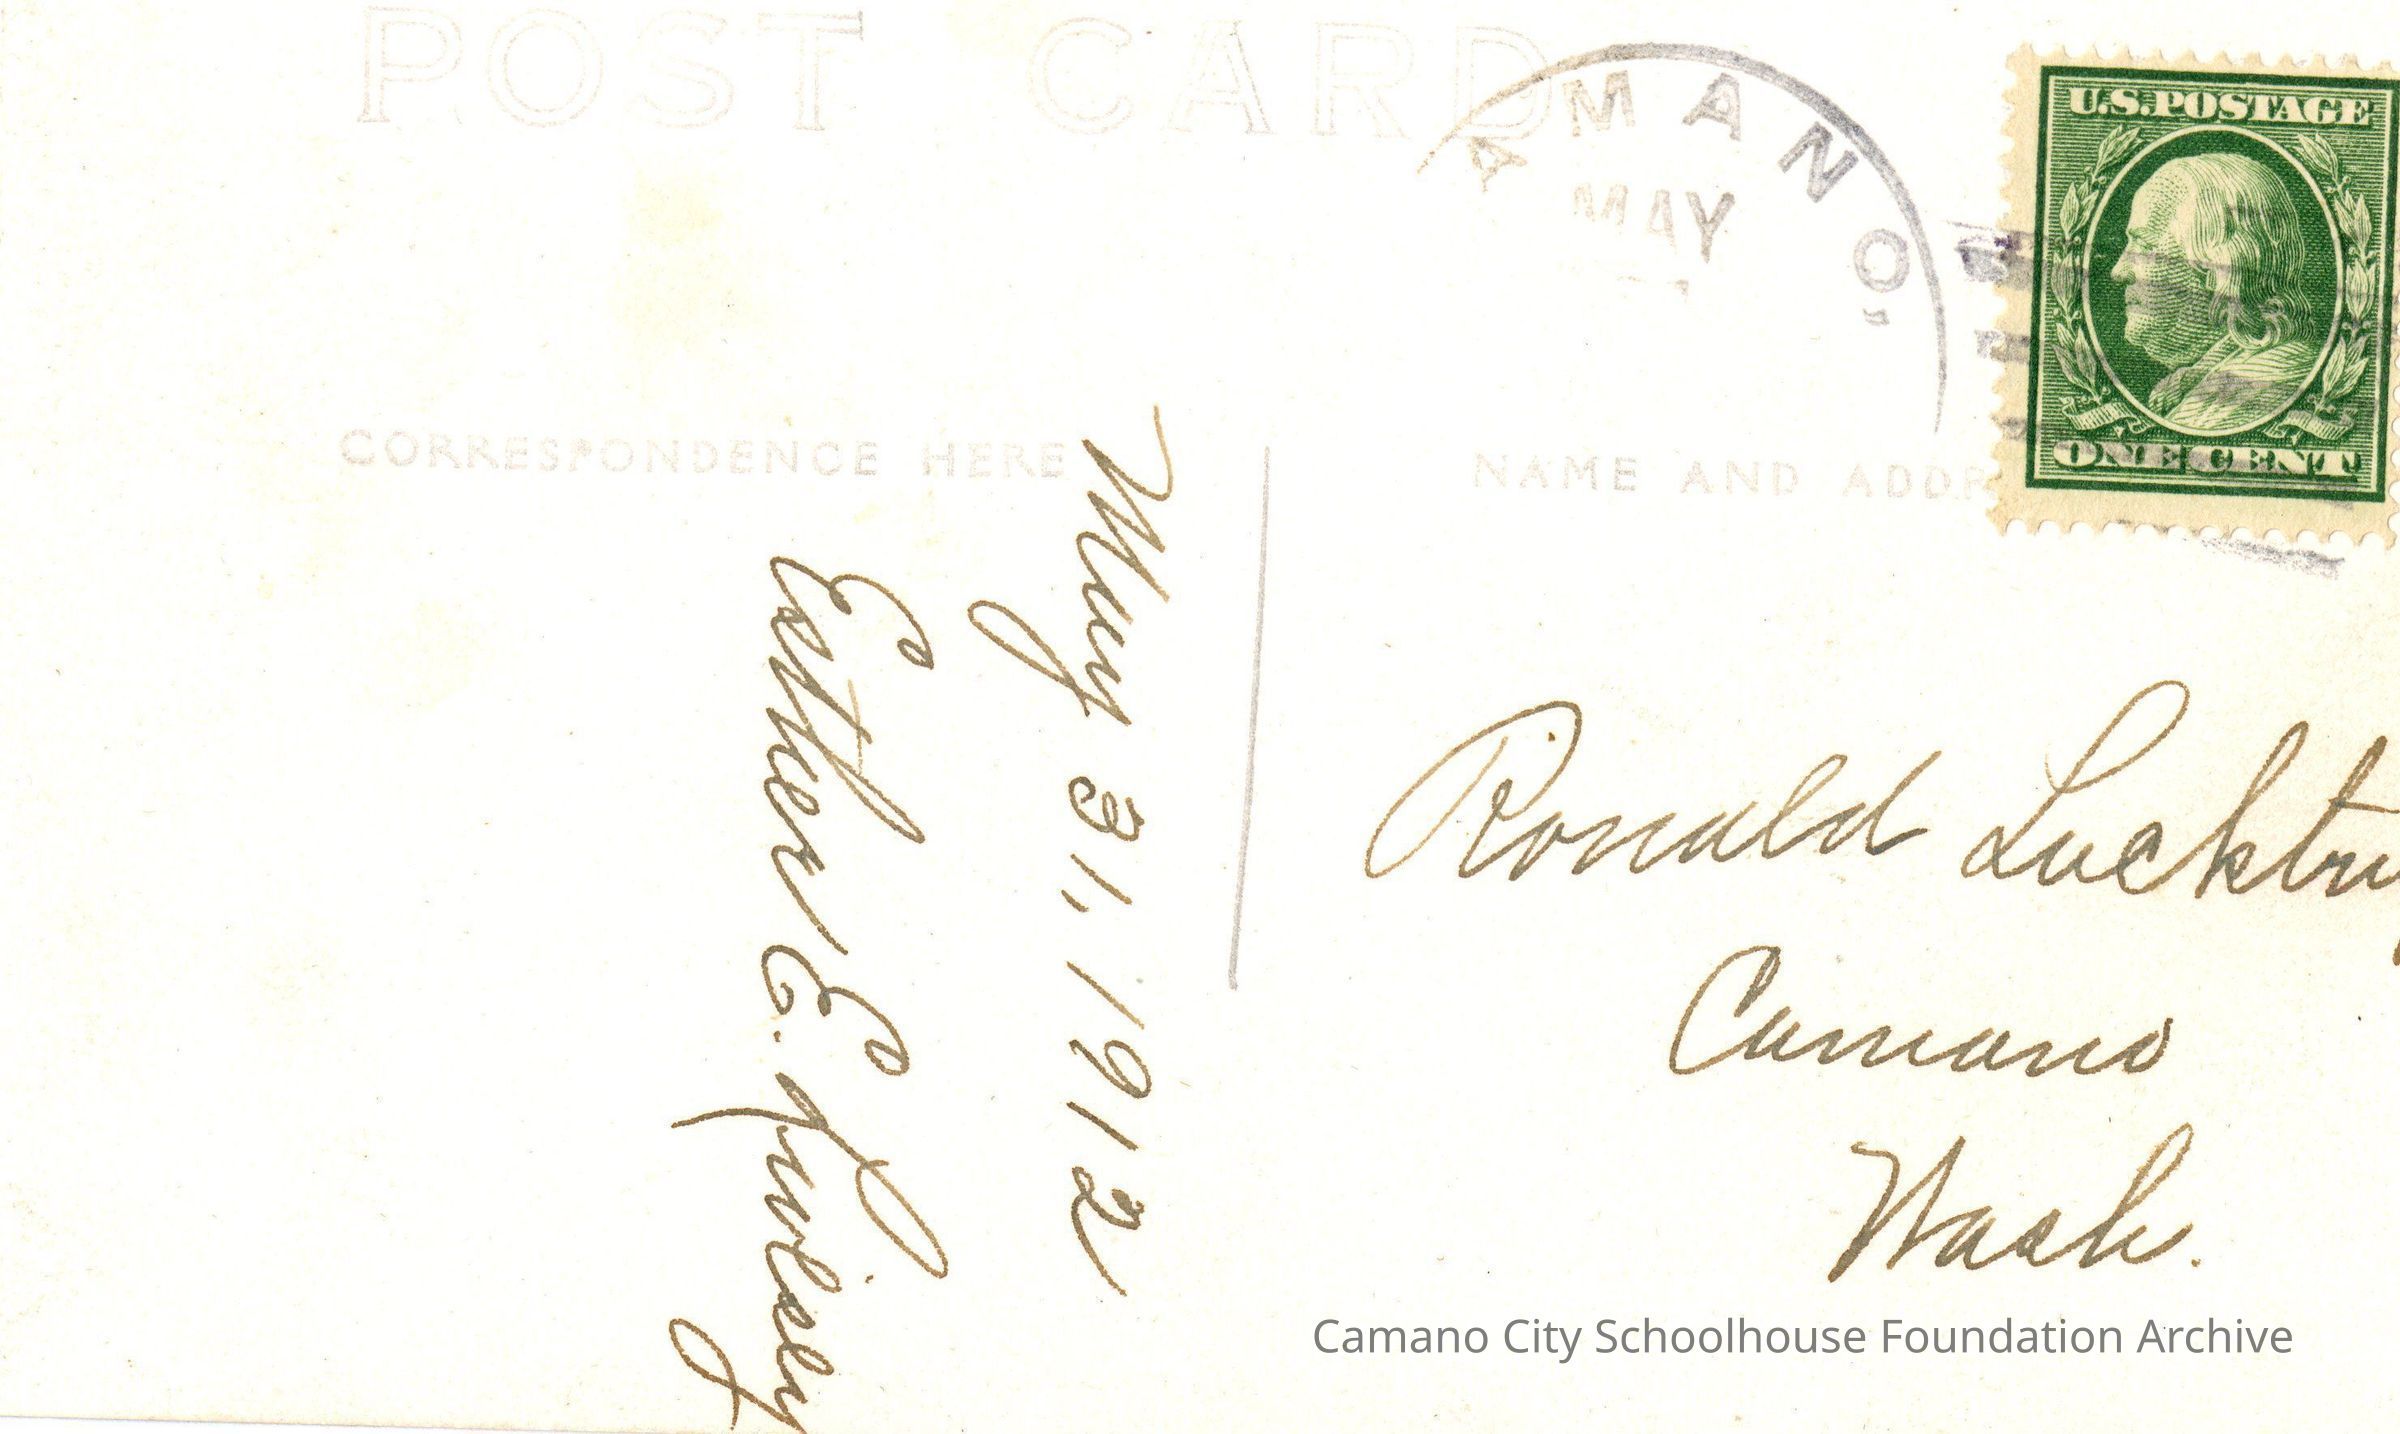 POST CARD
AMANO,
MAY
U.S. POSTAGE
ONE CENT
CORRESPONDENCE HERE
NAME AND ADDR
May 31, 1912
Esther E.
Ronald Lucktr
Camano
Wash.
Camano City Schoolhouse Foundation Archive